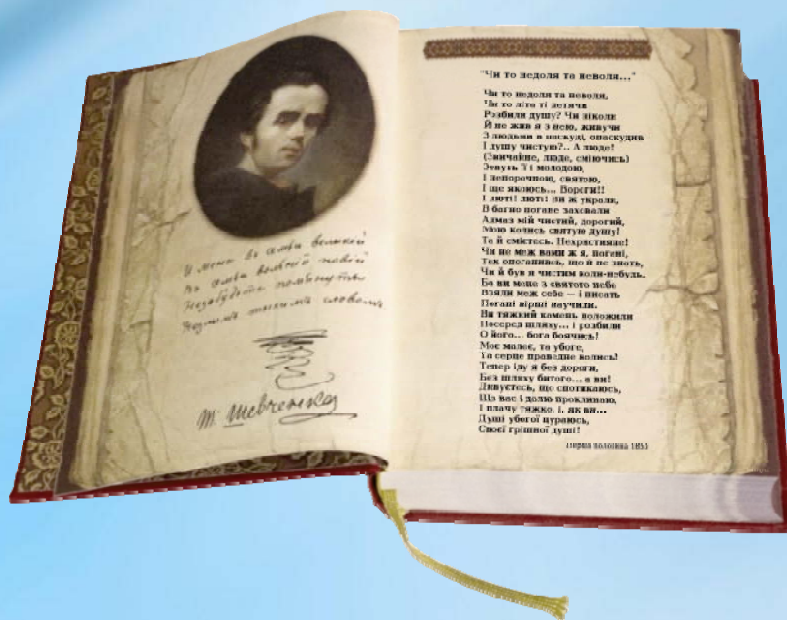 И мене въ семьи великій
Въ семьи вольній новій
Незабудьте помьянути
Незлымъ тихимъ словомъ
Т. Шевченко
"Чи то недоля та неволя..."
Чи то недоля та неволя,
Чи то літа ті летячи
Розбили душу? Чи ніколи
Й не жив я з нею, живучи
З людьми в паскуді, опаскудив
І душу чистую?.. А люде!
(Звичайне, люде, сміючись)
Зовуть її і молодою,
І непорочною, святою,
І ще якоюсь... Вороги!!
І люті! люті! ви ж украли,
В багно погане заховали
Алмаз мій чистий, дорогий,
Мою колись святую душу!
Та й смієтесь. Нехристияне!
Чи не меж вами ж я, погані,
Так опоганивсь, що й не знать,
Чи й був я чистим коли-небудь.
Бо ви мене з святого неба
Взяли меж себе — і писать
Погані вірші научили.
Ви тяжкий камень положили
Посеред шляху... і розбили
О його... бога боячись!
Моє малеє, та убоге,
Та серце праведне колись!
Тепер іду я без дороги,
Без шляху битого... а ви!
Дивуєтесь, що спотикаюсь,
Що вас і долю проклинаю,
І плачу тяжко, і, як ви...
Душі убогої цураюсь,
Своєї грішної душі!